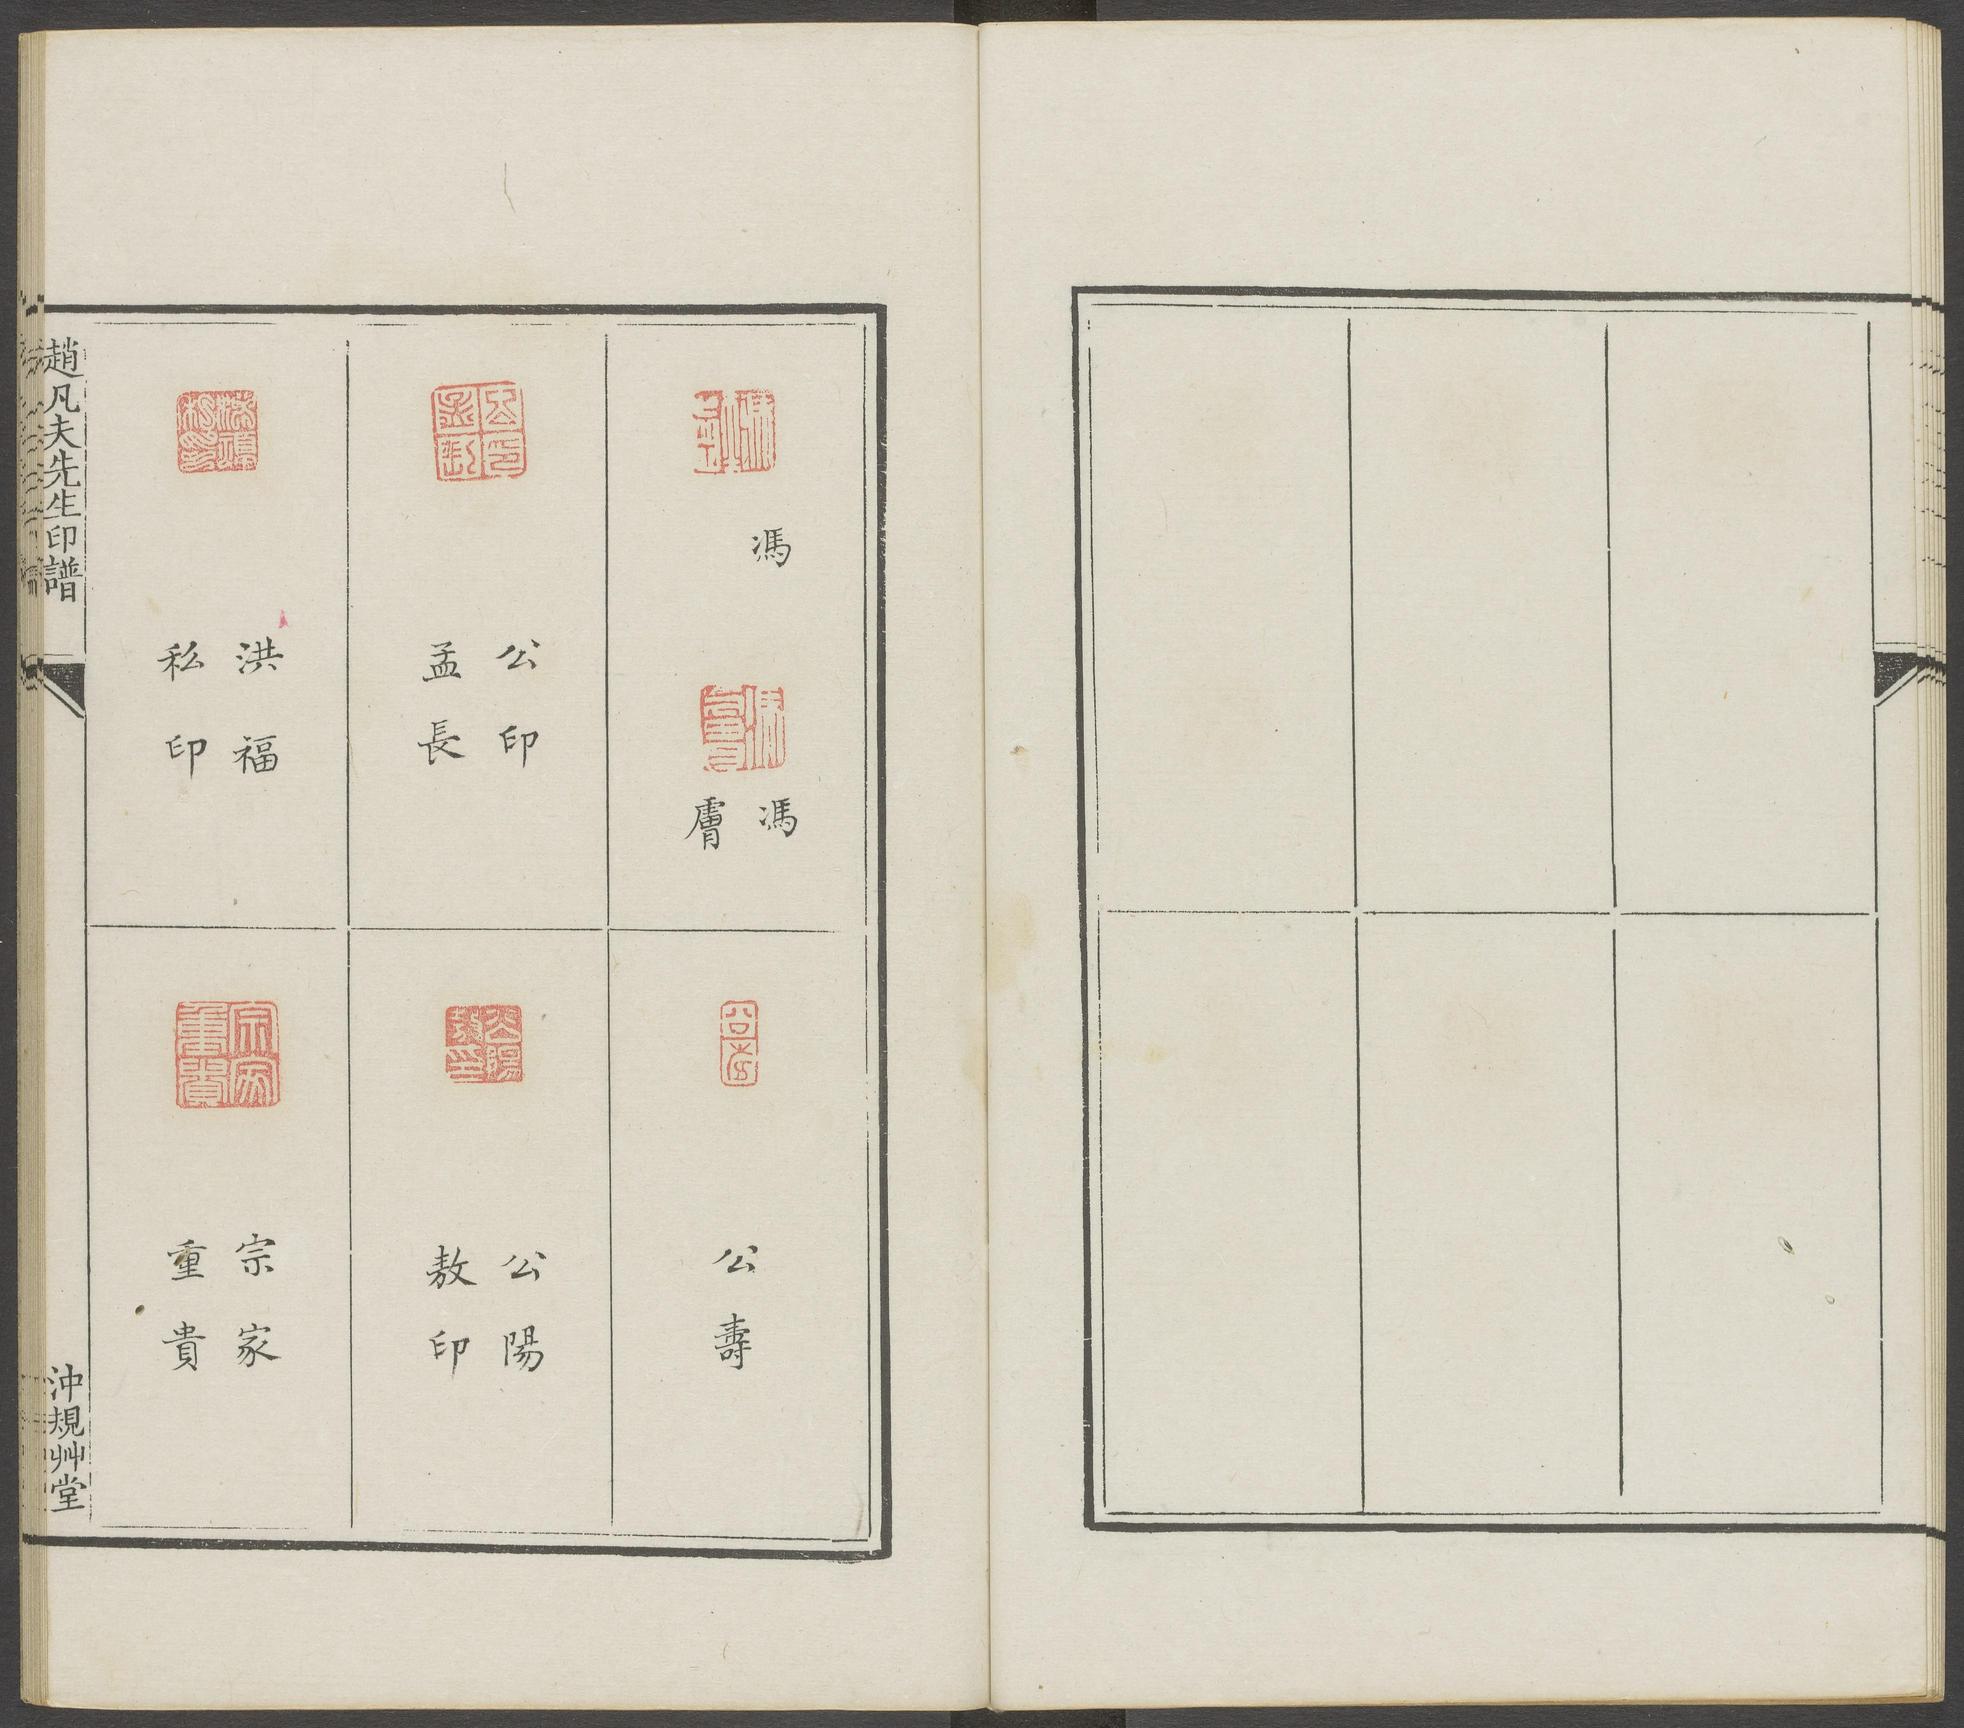 馮
馮
膚
公印
孟長
洪福
私印
公壽
公陽
敖印
宗家
重貴
趙凡夫先生印譜
沖規艸堂